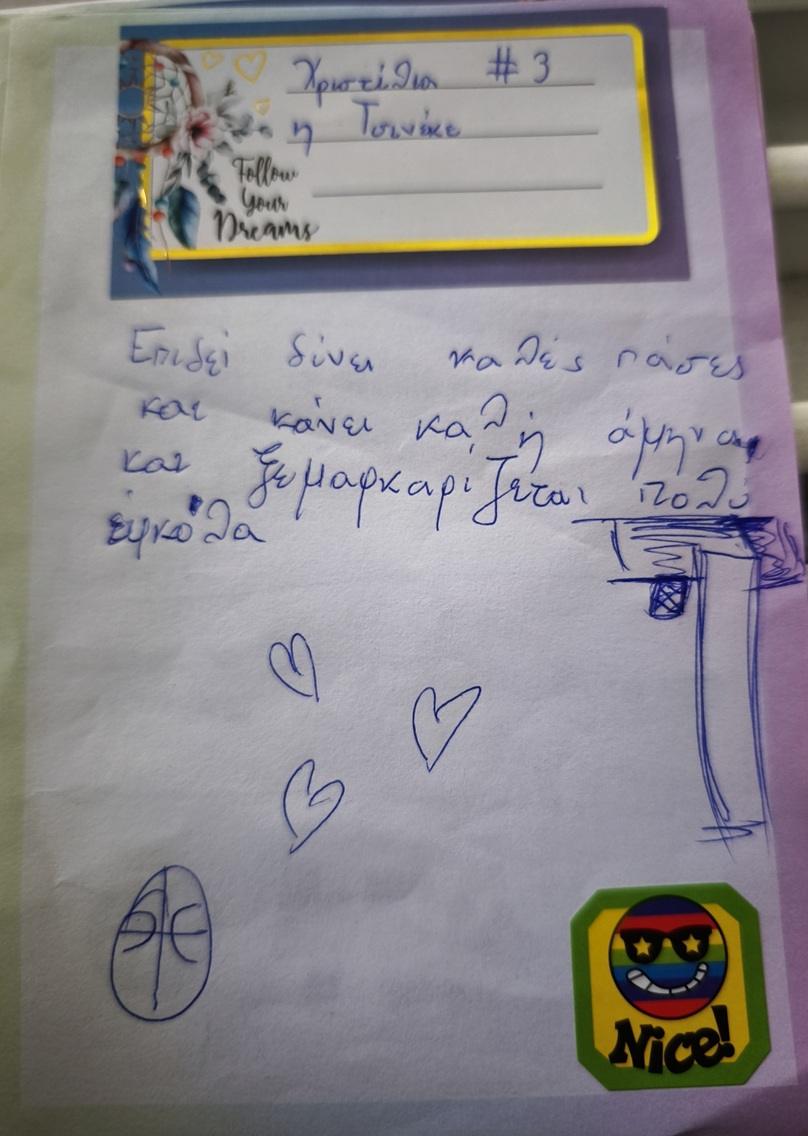 Χριστίθια #3
η Τσινάκι
Follow
Your
Dreams
Επιδεί δίνει καλές πάσες
και κάνει καλή άμηνα
και ξεμαρκαρίζεται πολύ
έφκολα
Nice!